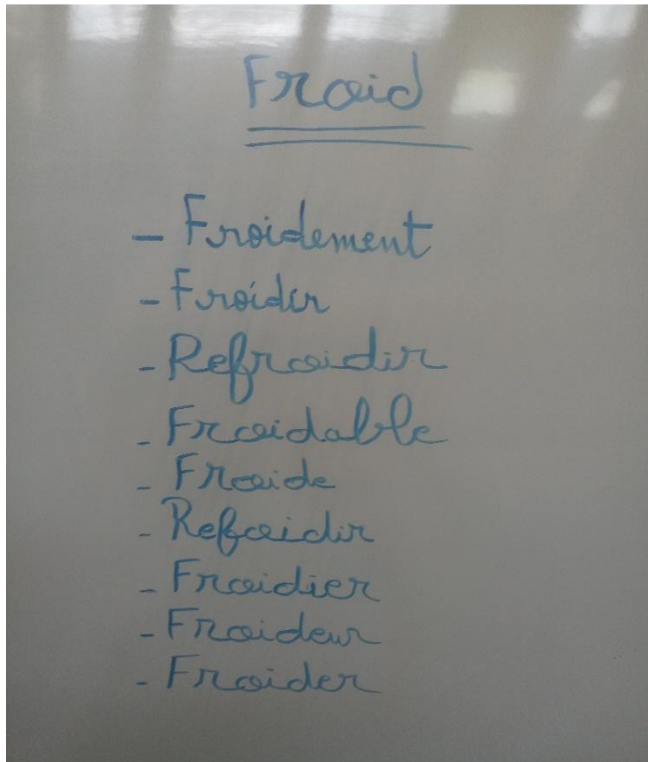 Froid
- Froidement
- Froidir
- Refroidir
- Froidable
- Froide
- Refoidir
- Froidier
- Froideur
- Froider